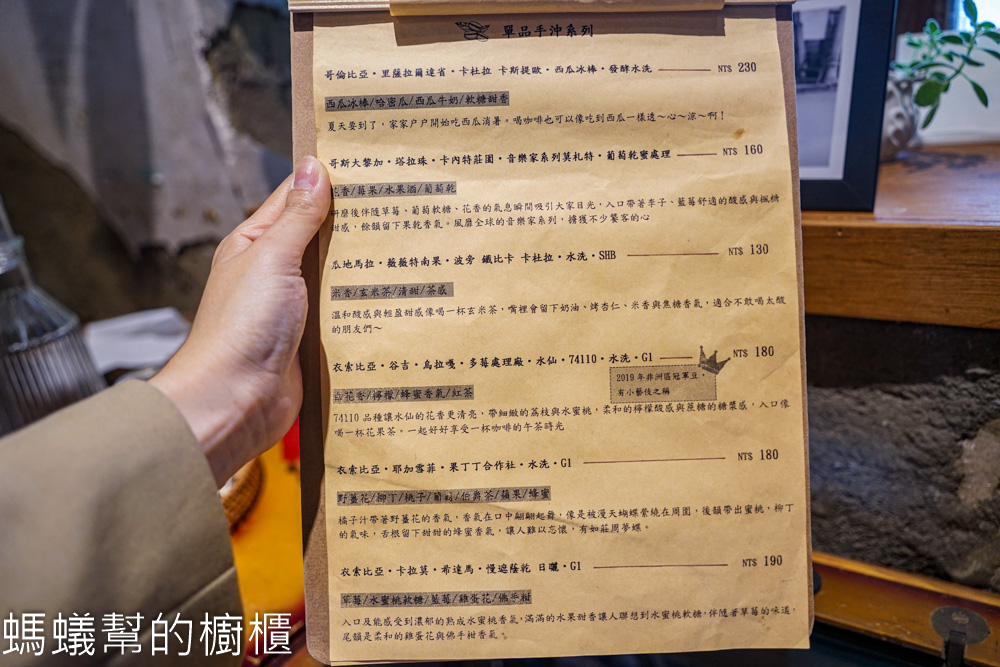 單品手沖系列
哥倫比亞・里薩拉爾達省・卡杜拉 卡斯提歐・西瓜冰棒・發酵水洗 NT$ 230
西瓜冰棒/哈密瓜/西瓜牛奶/軟糖甜香
夏天要到了，家家戶戶開始吃西瓜消暑。喝咖啡也可以像吃到西瓜一樣透～心～涼～啊！
哥斯大黎加・塔拉珠・卡內特莊園・音樂家系列莫札特・葡萄乾蜜處理 NT$ 160
花香/莓果/水果酒/葡萄乾
研磨後伴隨草莓、葡萄軟糖、花香的氣息瞬間吸引大家目光，入口帶著李子、藍莓舒適的酸感與楓糖
甜感，餘韻留下果乾香氣。風靡全球的音樂家系列，擄獲不少饕客的心
瓜地馬拉・薇薇特南果・波旁 鐵比卡 卡杜拉・水洗・SHB NT$ 130
米香/玄米茶/清甜/茶感
溫和酸感與輕盈甜感像喝一杯玄米茶，嘴裡會留下奶油、烤杏仁、米香與焦糖香氣，適合不敢喝太酸
的朋友們～
衣索比亞・谷吉・烏拉嘎・多莓處理廠・水仙・74110・水洗・G1 NT$ 180
2019年非洲區冠軍豆，
有小藝伎之稱
白花香/檸檬/蜂蜜香氣/紅茶
74110 品種讓水仙的花香更清亮，帶細緻的荔枝與水蜜桃，柔和的檸檬酸感與蔗糖的糖漿感，入口像
喝一杯花果茶。一起好好享受一杯咖啡的午茶時光
衣索比亞・耶加雪菲・果丁丁合作社・水洗・G1 NT$ 180
野薑花/柳丁/桃子/葡萄/伯爵茶/蘋果/蜂蜜
橘子汁帶著野薑花的香氣，香氣在口中翩翩起舞，像是被漫天蝴蝶縈繞在周圍，後韻帶出蜜桃，柳丁
的氣味，舌根留下甜甜的蜂蜜香氣，讓人難以忘懷，有如莊周夢蝶。
衣索比亞・卡拉莫・希達馬・慢遮蔭乾 日曬・G1 NT$ 190
草莓/水蜜桃軟糖/藍莓/雞蛋花/佛手柑
入口及能感受到濃郁的熟成水蜜桃香氣，滿滿的水果甜香讓人聯想到水蜜桃軟糖，伴隨著草莓的味道，
尾韻是柔和的雞蛋花與佛手柑香氣。
螞蟻幫的櫥櫃